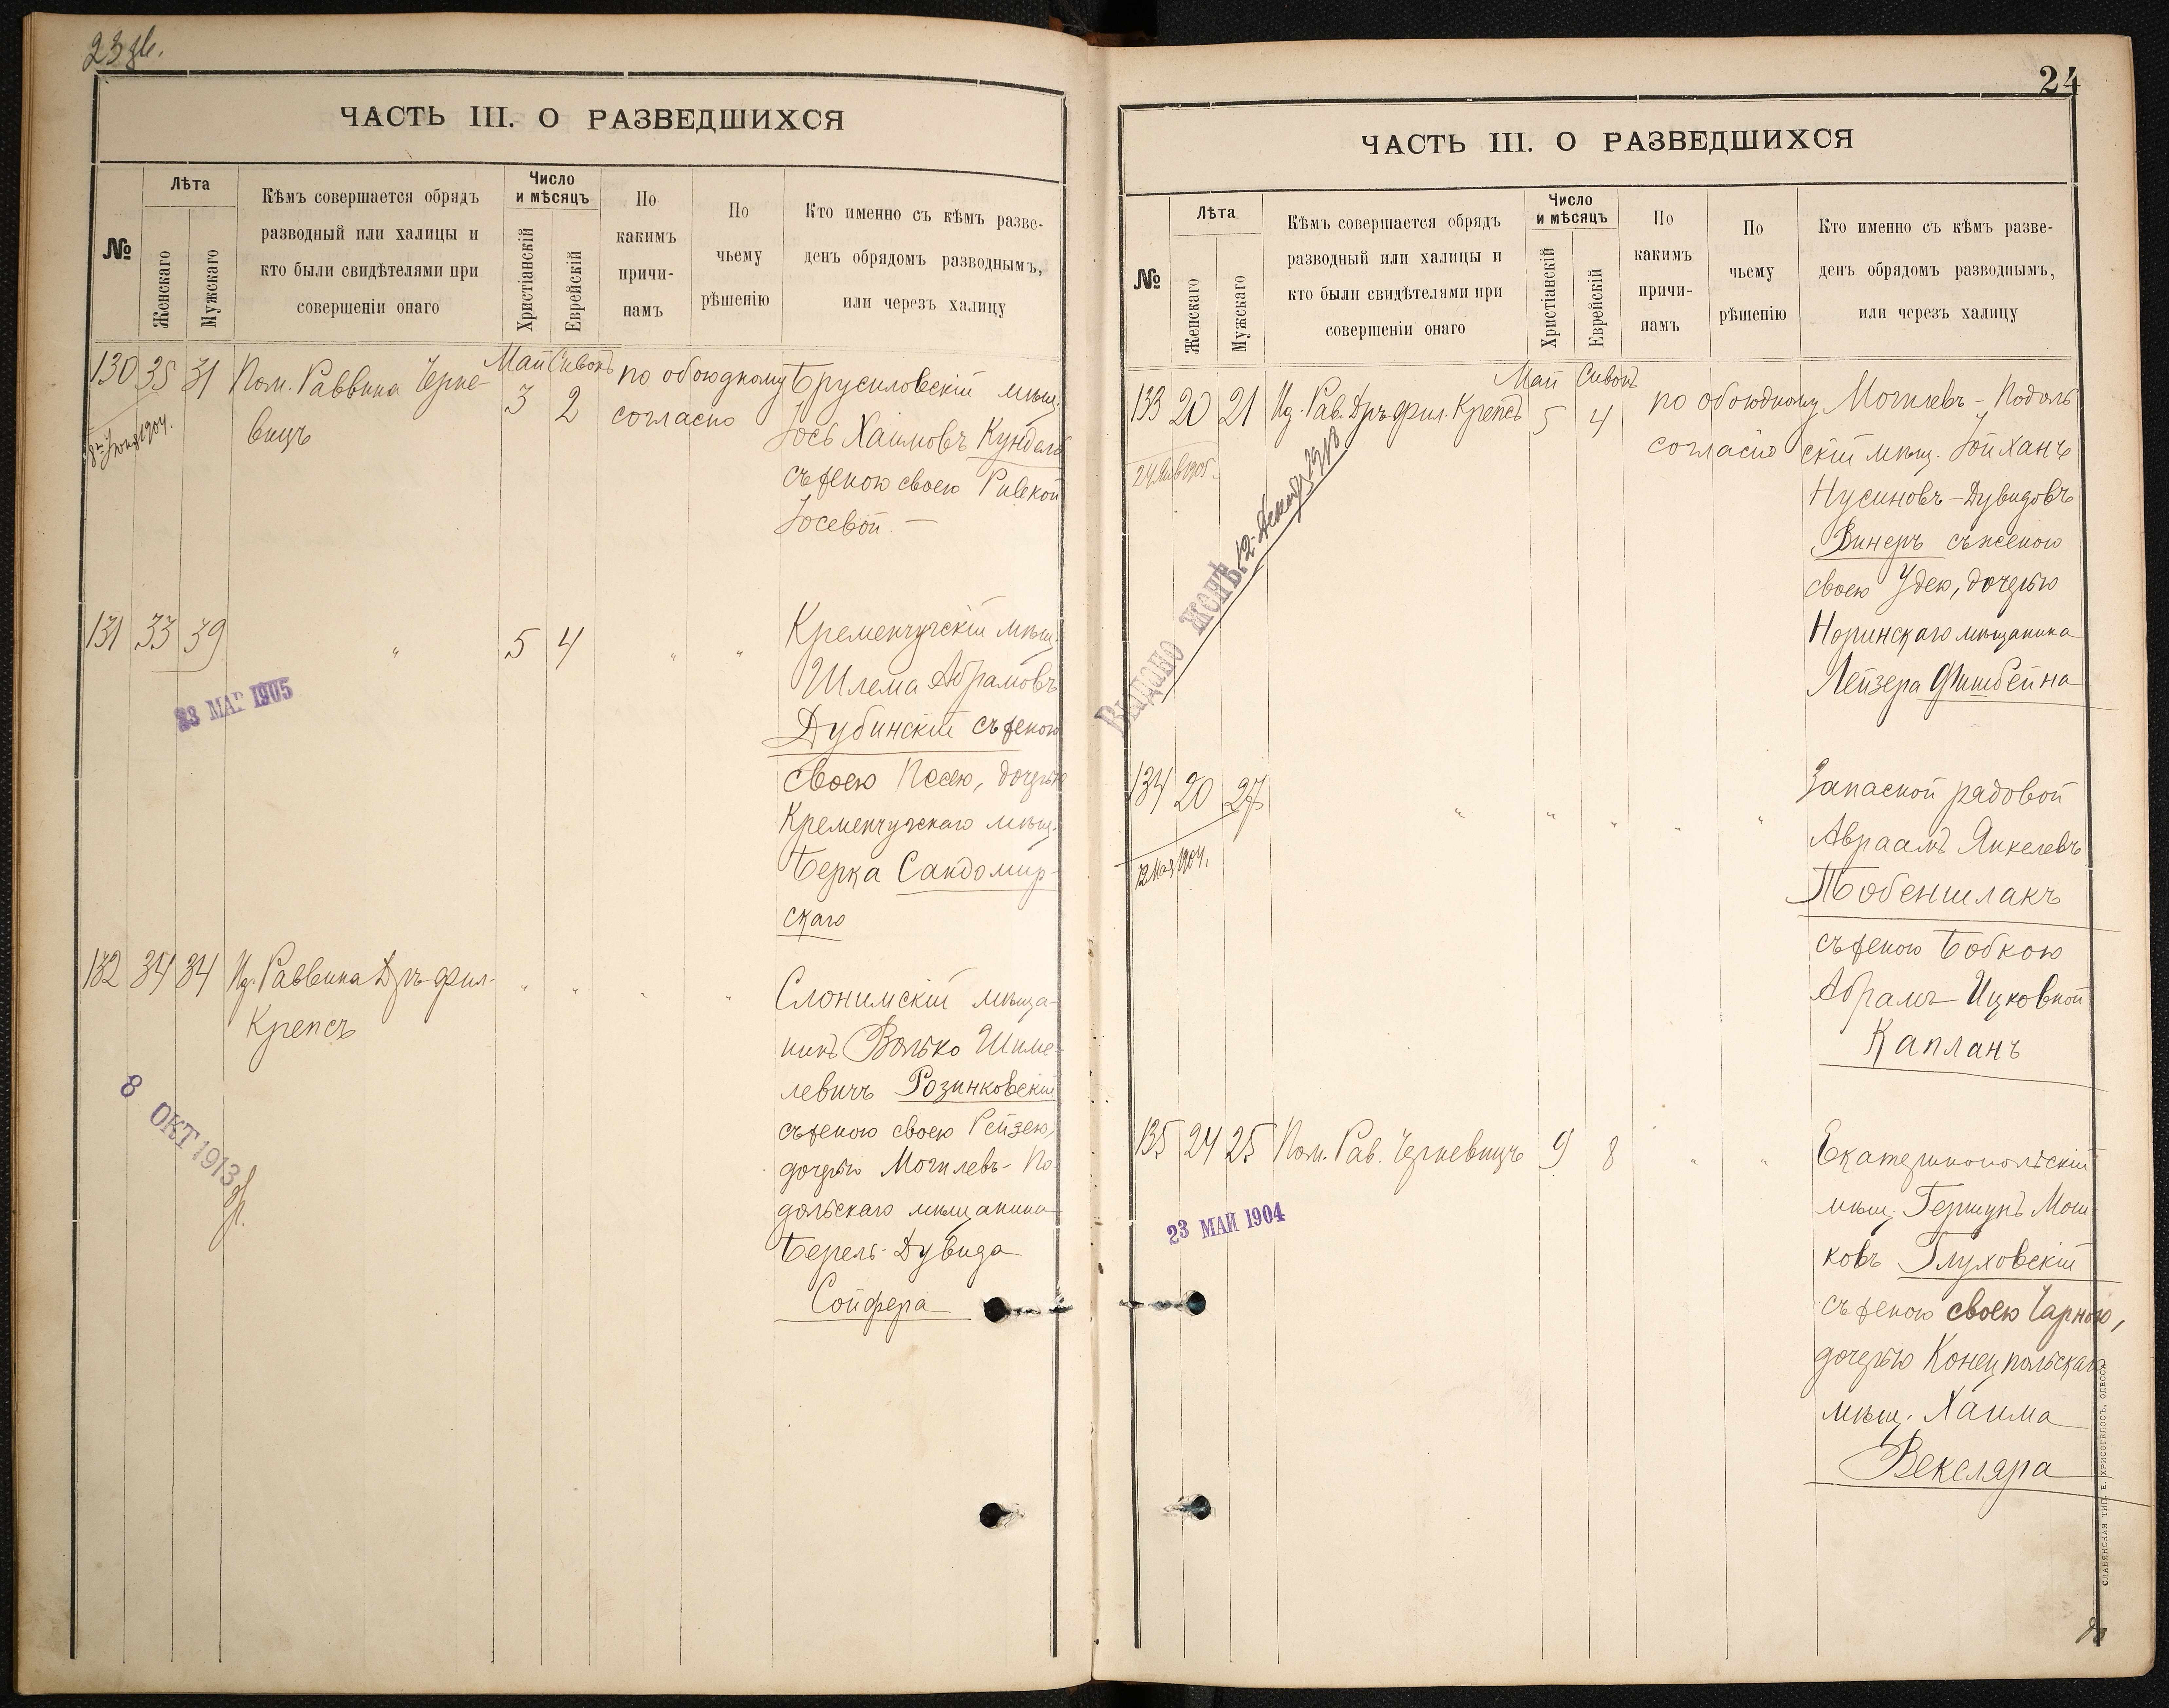 23 зв.
ЧАСТЬ III. О РАЗВЕДШИХСЯ
№
Лѣта
Женскаго
Мужскаго
Кѣмъ совершается обрядъ
разводный или халицы и
кто были свидѣтелями при
совершеніи онаго
Число
и мѣсяцъ
Христіанскій
Еврейскій
По
какимъ
причи-
намъ
По
чьему
рѣшенію
Кто именно съ кѣмъ разве-
денъ обрядомъ разводнымъ,
или черезъ халицу
130 35 31 Пом. Раввина Черне-
вицъ
Май Сивонъ
3 2
по обоюдному
согласію
Брусиловскій мѣщ.
Іось Хаимовъ Кундель
съ женою своею Ривкой
Іосевой —
8го Іюня 1904.
131 33 39 " 5 4 " "
Кременчугскій мѣщ.
Шлема Абрамовъ
Дубинскій съ женою
своею Песею, дочерью
Кременчугскаго мѣщ.
Берка Сандомир-
скаго
23 МАР 1905
132 34 34 Ид. Раввина Др ъ фил.
Крепсъ
" " " "
Слонимскій мѣща-
нинъ Волько Шиме-
левичъ Розинковскій
съ женою своею Рейзею,
дочерью Могилевъ-По
дольскаго мѣщанина
Берель-Дувида
Сойфера
8 ОКТ 1913
24
ЧАСТЬ III. О РАЗВЕДШИХСЯ
№
Лѣта
Женскаго
Мужскаго
Кѣмъ совершается обрядъ
разводный или халицы и
кто были свидѣтелями при
совершеніи онаго
Число
и мѣсяцъ
Христіанскій
Еврейскій
По
какимъ
причи-
намъ
По
чьему
рѣшенію
Кто именно съ кѣмъ разве-
денъ обрядомъ разводнымъ,
или черезъ халицу
133 20 21 Ид. Рав. Дръ фил. Крепсъ
Май Сивонъ
5 4
по обоюдному
согласію
Могилевъ-Подоль
скій мѣщ. Іойханъ
Нусиновъ-Дувидовъ
Винеръ съ женою
своею Удею, дочерью
Норинскаго мѣщанина
Лейзера Фишбейна
24 Янв 1905.
Выдано женѣ. 12 Декабр. 1913
134 20 27 " " " " "
Запасной рядовой
Авраамъ Янкелевъ
Побеншлакъ
съ женою Бобкою
Абрамъ-Ицковной
Капланъ
12 Мая 1904.
135 24 25 Пом. Рав. Черневицъ 9 8 " "
Екатеринопольскій
мѣщ. Гершунъ Мош-
ковъ Глуховскій
съ женою своею Чарною,
дочерью Конецпольскаго
мѣщ. Хаима
Векслара
23 МАЙ 1904
СЛАВЯНСКАЯ ТИП. Е. ХРИСОГЕЛОСЪ, ОДЕССА